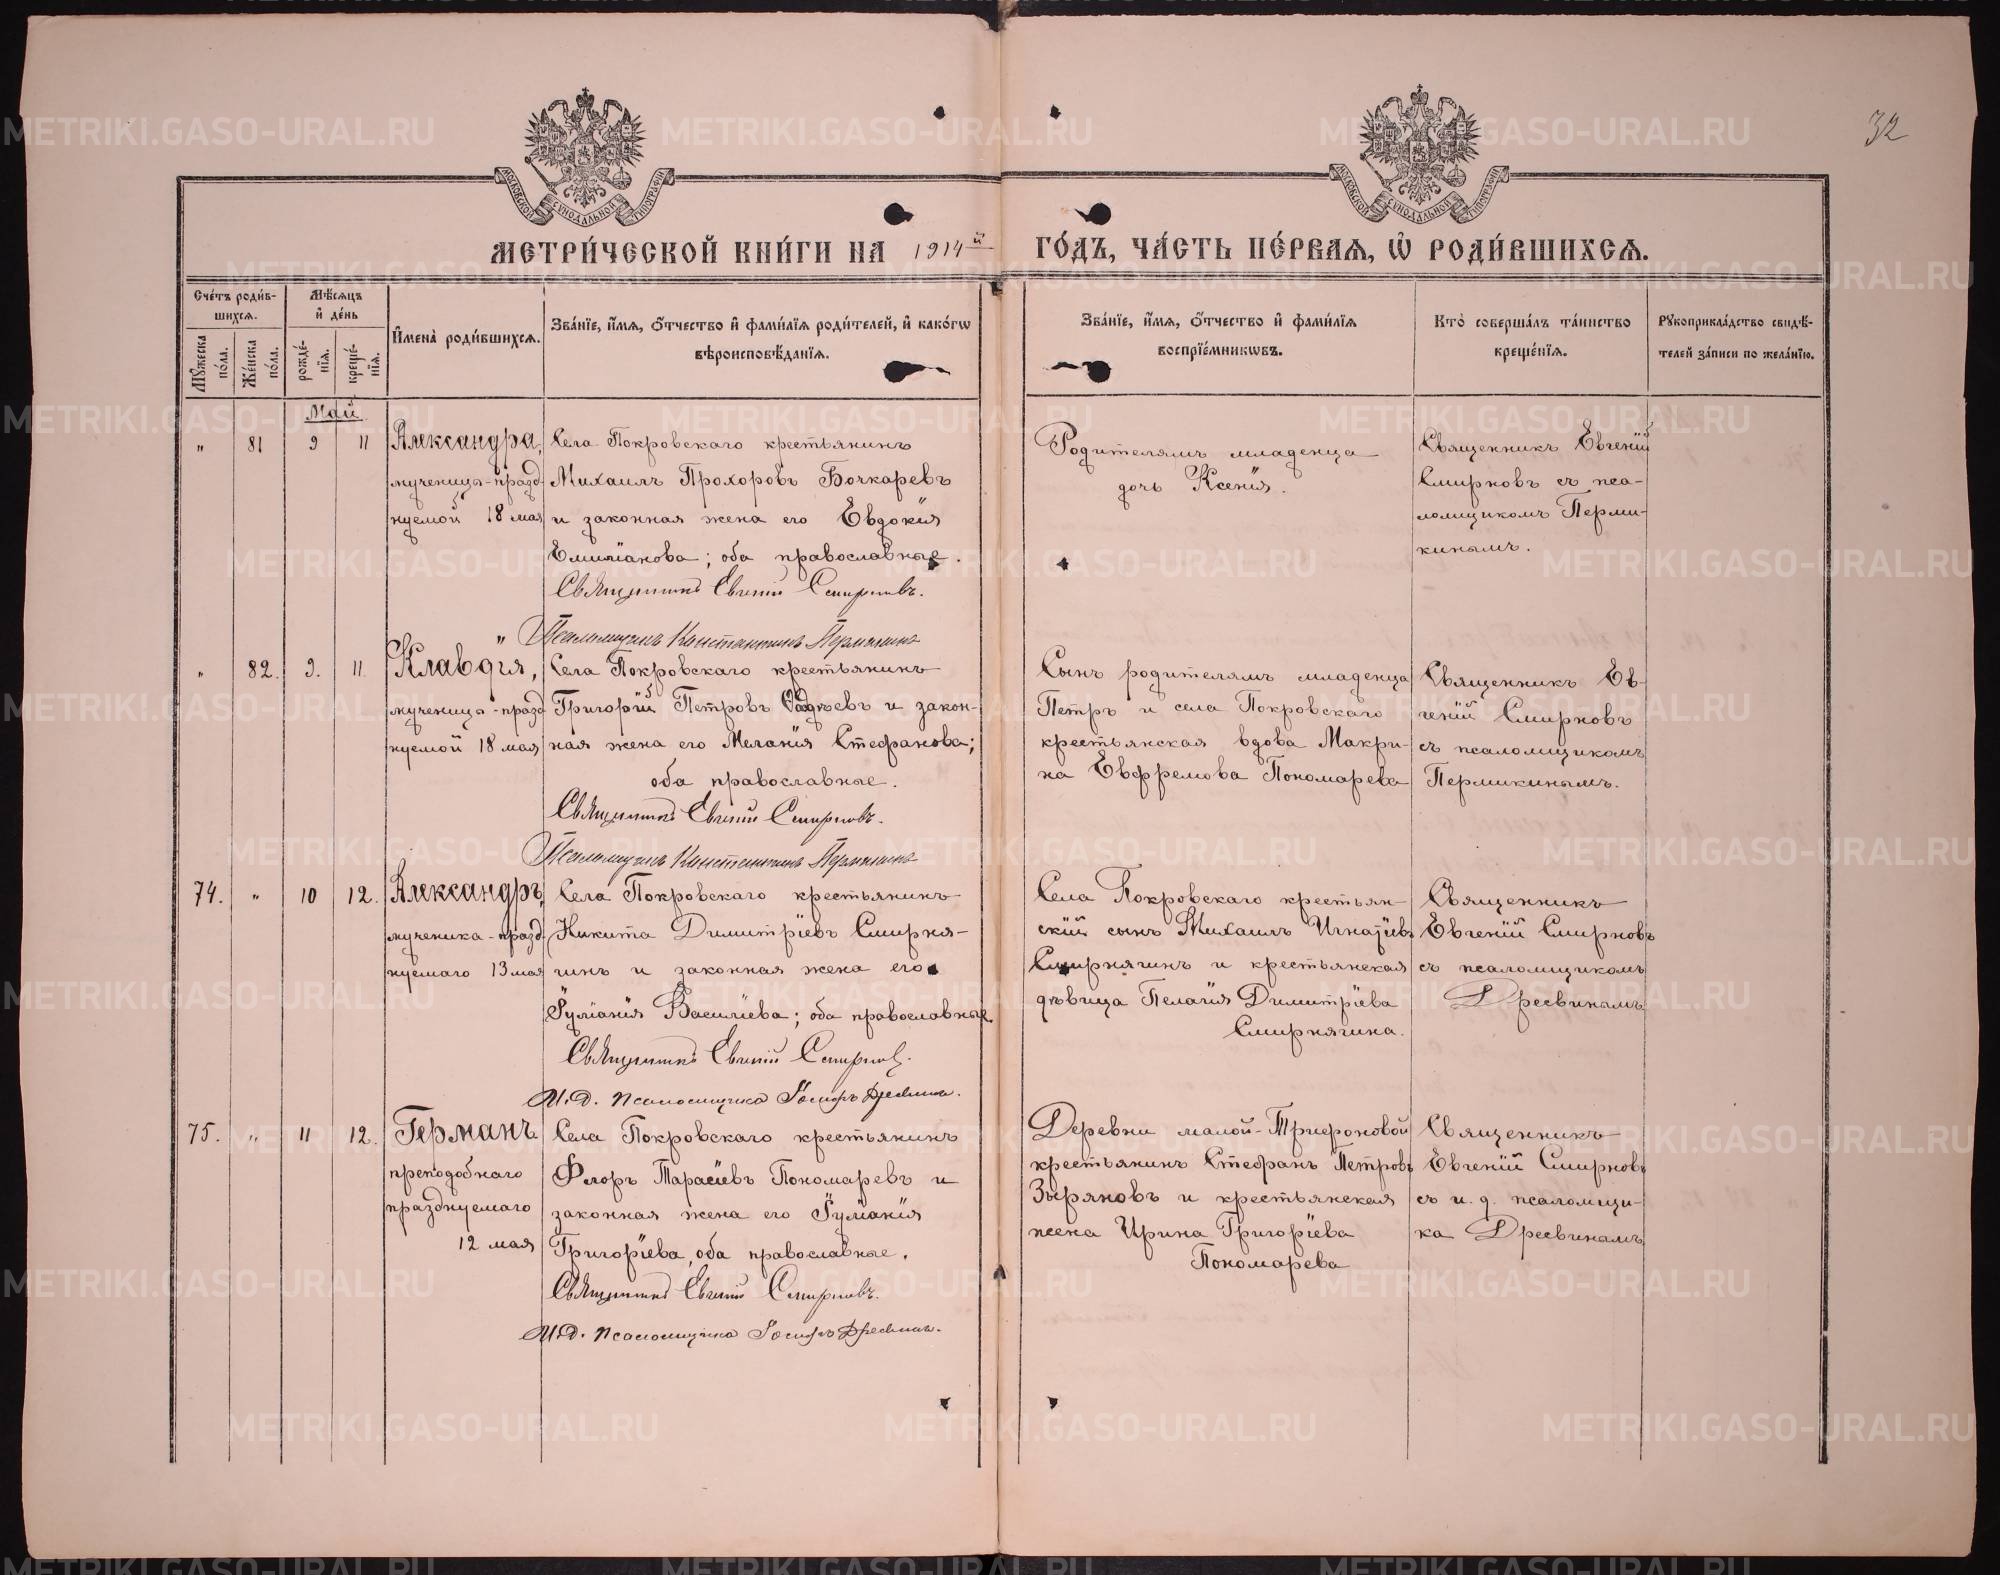 32
МОСКОВСКОЙ СѴНОДАЛЬНОЙ ТИПОГРАФІИ
МОСКОВСКОЙ СѴНОДАЛЬНОЙ ТИПОГРАФІИ
МЕТРИ́ЧЕСКОЙ КНИ́ГИ НА 1914й ГО́ДЪ, ЧА́СТЬ ПЕ́РВАѦ, Ѡ҆ РОДИ́ВШИХСѦ.
Сче́тъ роди́в-
шихсѧ.
Мꙋ́жеска по́ла.
Же́нска по́ла.
Мѣ́сѧцъ
и҆ де́нь
рожде́-
нїѧ.
креще́-
нїѧ.
И҆мена̀ роди́вшихсѧ.
Зва́нїе, и҆́мѧ, ѻ҆́тчество и҆ фами́лїѧ роди́телей, и҆ како́гѡ
вѣроисповѣ́данїѧ.
Зва́нїе, и҆́мѧ, ѻ҆́тчество и҆ фами́лїѧ
воспрїе́мникѡвъ.
Кто̀ соверша́лъ та́инство
креще́нїѧ.
Рꙋкоприкла́дство свидѣ́-
телей за́писи по жела́нїю.
Май
" 81 9 11
Александра,
мученица-празд-
нуемой 18 мая
Села Покровскаго крестьянинъ
Михаилъ Прохоровъ Бочкаревъ
и законная жена его Евдокія
Емиліанова; оба православные.
Священникъ Евгеній Смирновъ.
Псаломщикъ Константинъ Пермикинъ
Родителямъ младенца
дочь Ксенія.
Священникъ Евгеній
Смирновъ съ пса-
ломщикомъ Перми-
кинымъ.
" 82. 9. 11
Клавдія,
мученица-празд-
нуемой 18 мая
Села Покровскаго крестьянинъ
Григорій Петровъ и закон-
ная жена его Меланія Стефанова;
оба православные.
Священникъ Евгеній Смирновъ.
Псаломщикъ Константинъ Пермикинъ
Сынъ родителямъ младенца
Петръ и села Покровскаго
крестьянская вдова Макри-
на Евфремова Пономарева
Священникъ Ев-
геній Смирновъ
съ псаломщикомъ
Пермикинымъ.
74. " 10 12.
Александръ,
мученика-празд-
нуемаго 13 мая
Села Покровскаго крестьянинъ
Никита Димитріевъ Смирня-
гинъ и законная жена его
Іуліанія Василіева; оба православные.
Священникъ Евгеній Смирновъ.
И.д. псаломщика Іосифъ Дресвинъ.
Села Покровскаго крестьян-
скій сынъ Михаилъ Игнатіевъ
Смирнягинъ и крестьянская
дѣвица Пелагія Димитріева
Смирнягина.
Священникъ
Евгеній Смирновъ
съ псаломщикомъ
Дресвинымъ
75. " 11 12.
Германъ
преподобнаго
празднуемаго
12 мая
Села Покровскаго крестьянинъ
Флоръ Тарасіевъ Пономаревъ и
законная жена его Іуліанія
Григоріева, оба православные.
Священникъ Евгеній Смирновъ.
И.д. псаломщика Іосифъ Дресвинъ.
Деревни малой-Трифоновой
крестьянинъ Стефанъ Петровъ
Зыряновъ и крестьянская
жена Ирина Григоріева
Пономарева
Священникъ
Евгеній Смирновъ
съ и. д. псаломщи-
ка Дресвинымъ
METRIKI.GASO-URAL.RU